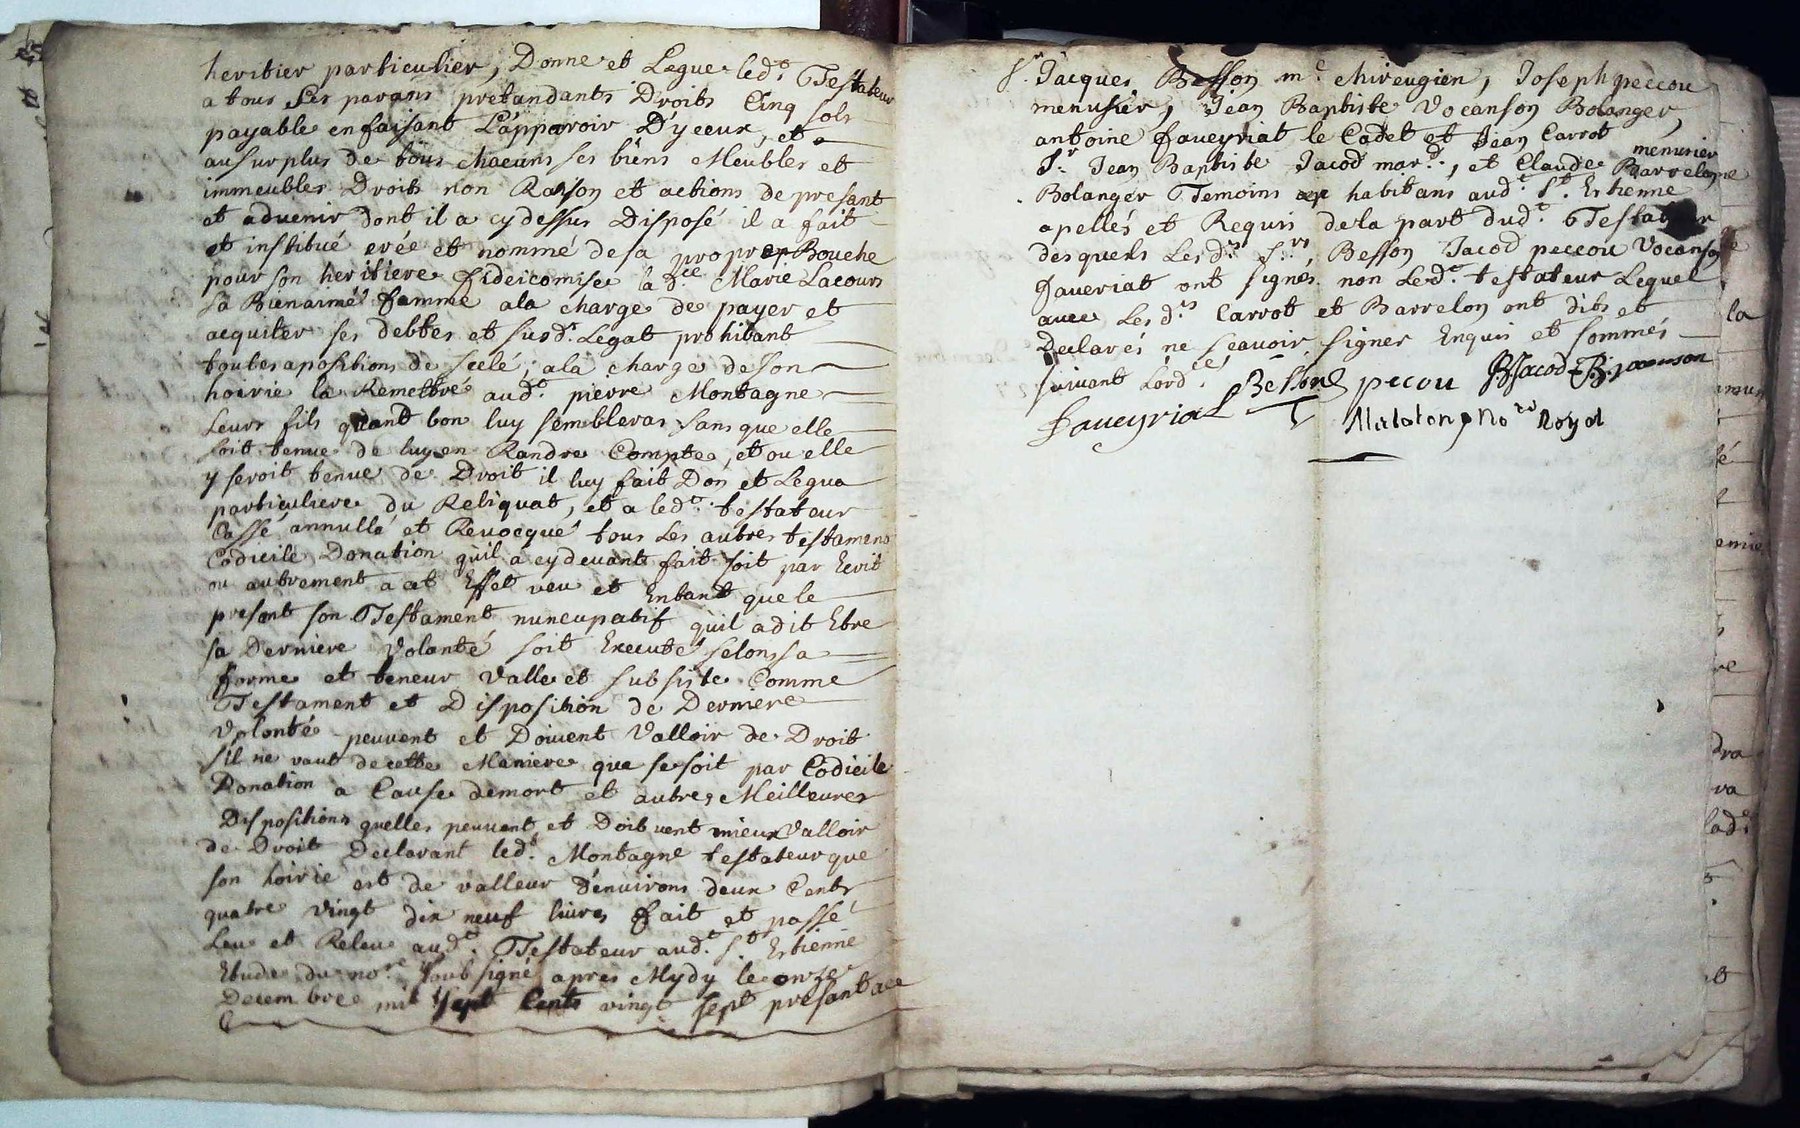 heritier particulier, Donne et Legue led.t Testateur
a tous Ses parans pretandants Droits Cinq sols
payable en faisant L'apparoir D'yceux, et
au surplus de tous chacuns ses biens Meubles et
immeubles Droits non Raison et actions de presant
et advenir dont il a cy dessus Disposé il a fait
et institué créé et nommé de sa propre Bouche
pour son heritiere fideicomise la d.ce Marie Lacours
sa Bienaimé famme a la charge de payer et
acquiter ses debtes et susd.s Legat prohibant
toutes apositions de scelé; a la charge de son
hoirie la Remettre aud.t pierre Montagne
Leurs fils quant bon luy semblera sans que elle
soit tenue de luy en Randre Compte, et ou elle
y seroit tenue de Droit il luy fait Don et Legua
particuliere du Reliquat, et a led.t testateur
Cassé annullé et Revocqué tous Les autres testamens
Codicile Donation qu'il a cydevant fait soit par Ecrit
ou autrement a cet Effet veu et Entant que le
presant son Testament nuncupatif qu'il a dit Etre
sa Derniere Volanté soit Executé selon sa
forme et teneur Valle et subsiste Comme
Testament et Disposition de Derniere
Volonté peuvent et Doivent Valloir de Droit
s'il ne vaut de cette Maniere que se soit par Codicile
Donation a Cause de mort et autres Meilleures
Dispositions quelles peuvent et Doibvent mieux Valloir
de Droit Declarant led.t Montagne testateur que
son hoirie est de valleur d'environs deux Cents
quatre vingt dix neuf livres fait et passé
Leu et Releu aud.t Testateur aud.t S.t Estienne
Etude du no.re soub signé apres Mydy le onze
Decembre mil Sept Cents vingt sept presant a ce
S.r Jacques Besson m.e chireugien, Joseph peccou
menusier, Jean Baptiste Vocanson Bolanger,
antoine faveyriat le Cadet et Jean Carrot menusier
S.r Jean Baptiste Jacod mar.d, et Claude Barrelon
Bolanger Temoins habitans aud.t S.t Estienne
apellés et Requis de la part dud.t Testateur
desquels Lesd.ts S.rs Besson Jacod peccou Vocanson
faveriat ont signés non Led.t testateur Lequel
avec Lesd.ts Carrot et Barrelon ont dits et
Declarés ne scavoir signer Enquis et sommés
suivant L'ord.ce
Besson pecou JBJacod
Faveyriat
No.re Royal
la